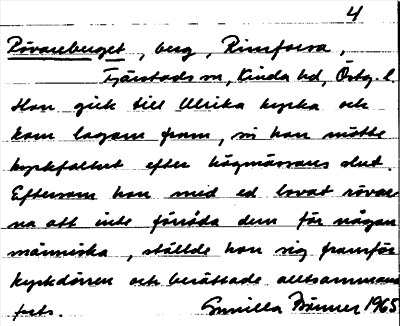 4
Rövareberget, berg, Rimforsa,
Tjärstads sn, Kinda hd, Östg. l.
Hon gick till Ulrika kyrka och
kom lagom fram, så hon mötte
kyrkfolket efter högmässans slut.
Eftersom hon med ed lovat rövar-
na att inte förråda dem för någon
människa, ställde hon sig framför
kyrkdörren och berättade alltsammans
forts. Gunilla 1965